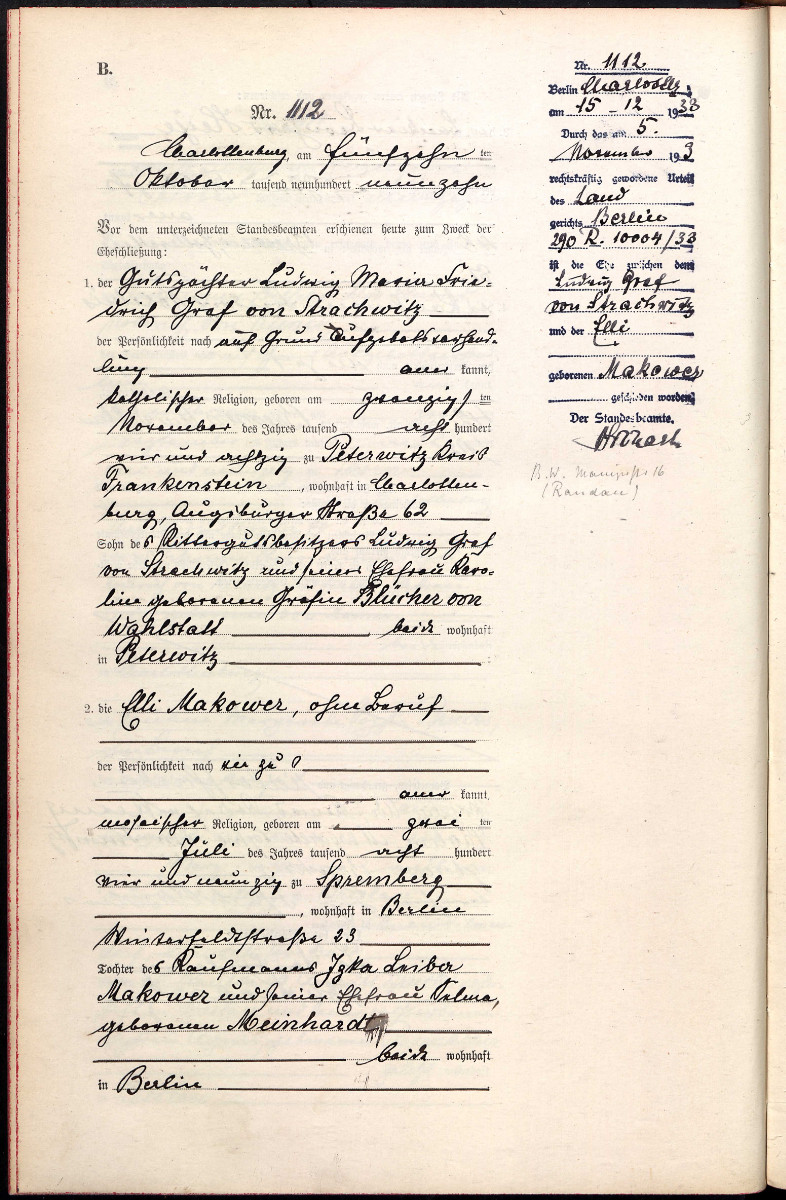 B.
Nr. 1112
Charlottenburg, am fünfzehn ten
Oktober tausend neunhundert neunzehn
Vor dem unterzeichneten Standesbeamten erschienen heute zum Zweck der
Eheschließung:
1. der Gutspächter Ludwig Maria Frie-
drich Graf von Strachwitz
der Persönlichkeit nach auf Grund Aufgebotsverhand-
lung aner kannt,
katholischer Religion, geboren am zwanzigs ten
November des Jahres tausend acht hundert
vier und achtzig zu Peterwitz Kreis
Frankenstein , wohnhaft in Charlotten-
burg, Augsburger Straße 62
Sohn des Rittergutsbesitzers Ludwig Graf
von Strachwitz und seiner Ehefrau Karo-
line geborenen Gräfin Blücher von
Wahlstatt beide wohnhaft
in Peterwitz
2. die Elli Makower, ohne Beruf
der Persönlichkeit nach wie zu
aner kannt,
mosaischer Religion, geboren am zwei ten
Juli des Jahres tausend acht hundert
vier und neunzig zu Spremberg
, wohnhaft in Berlin
Winterfeldtstraße 23
Tochter des Kaufmanns Leiber
Makower und seiner Ehefrau Selma,
geborenen Meinhardt
beide wohnhaft
in Berlin
Nr. 1112.
Berlin
am 15 - 12 1933
Durch das am 5.
November 193
rechtskräftig gewordene Urteil
des Land
gerichts Berlin
290 R. 10004/33
ist die Ehe zwischen dem
Ludwig Graf
von Strachwitz
und der Elli
geborenen Makower
geschieden worden.
Der Standesbeamte.